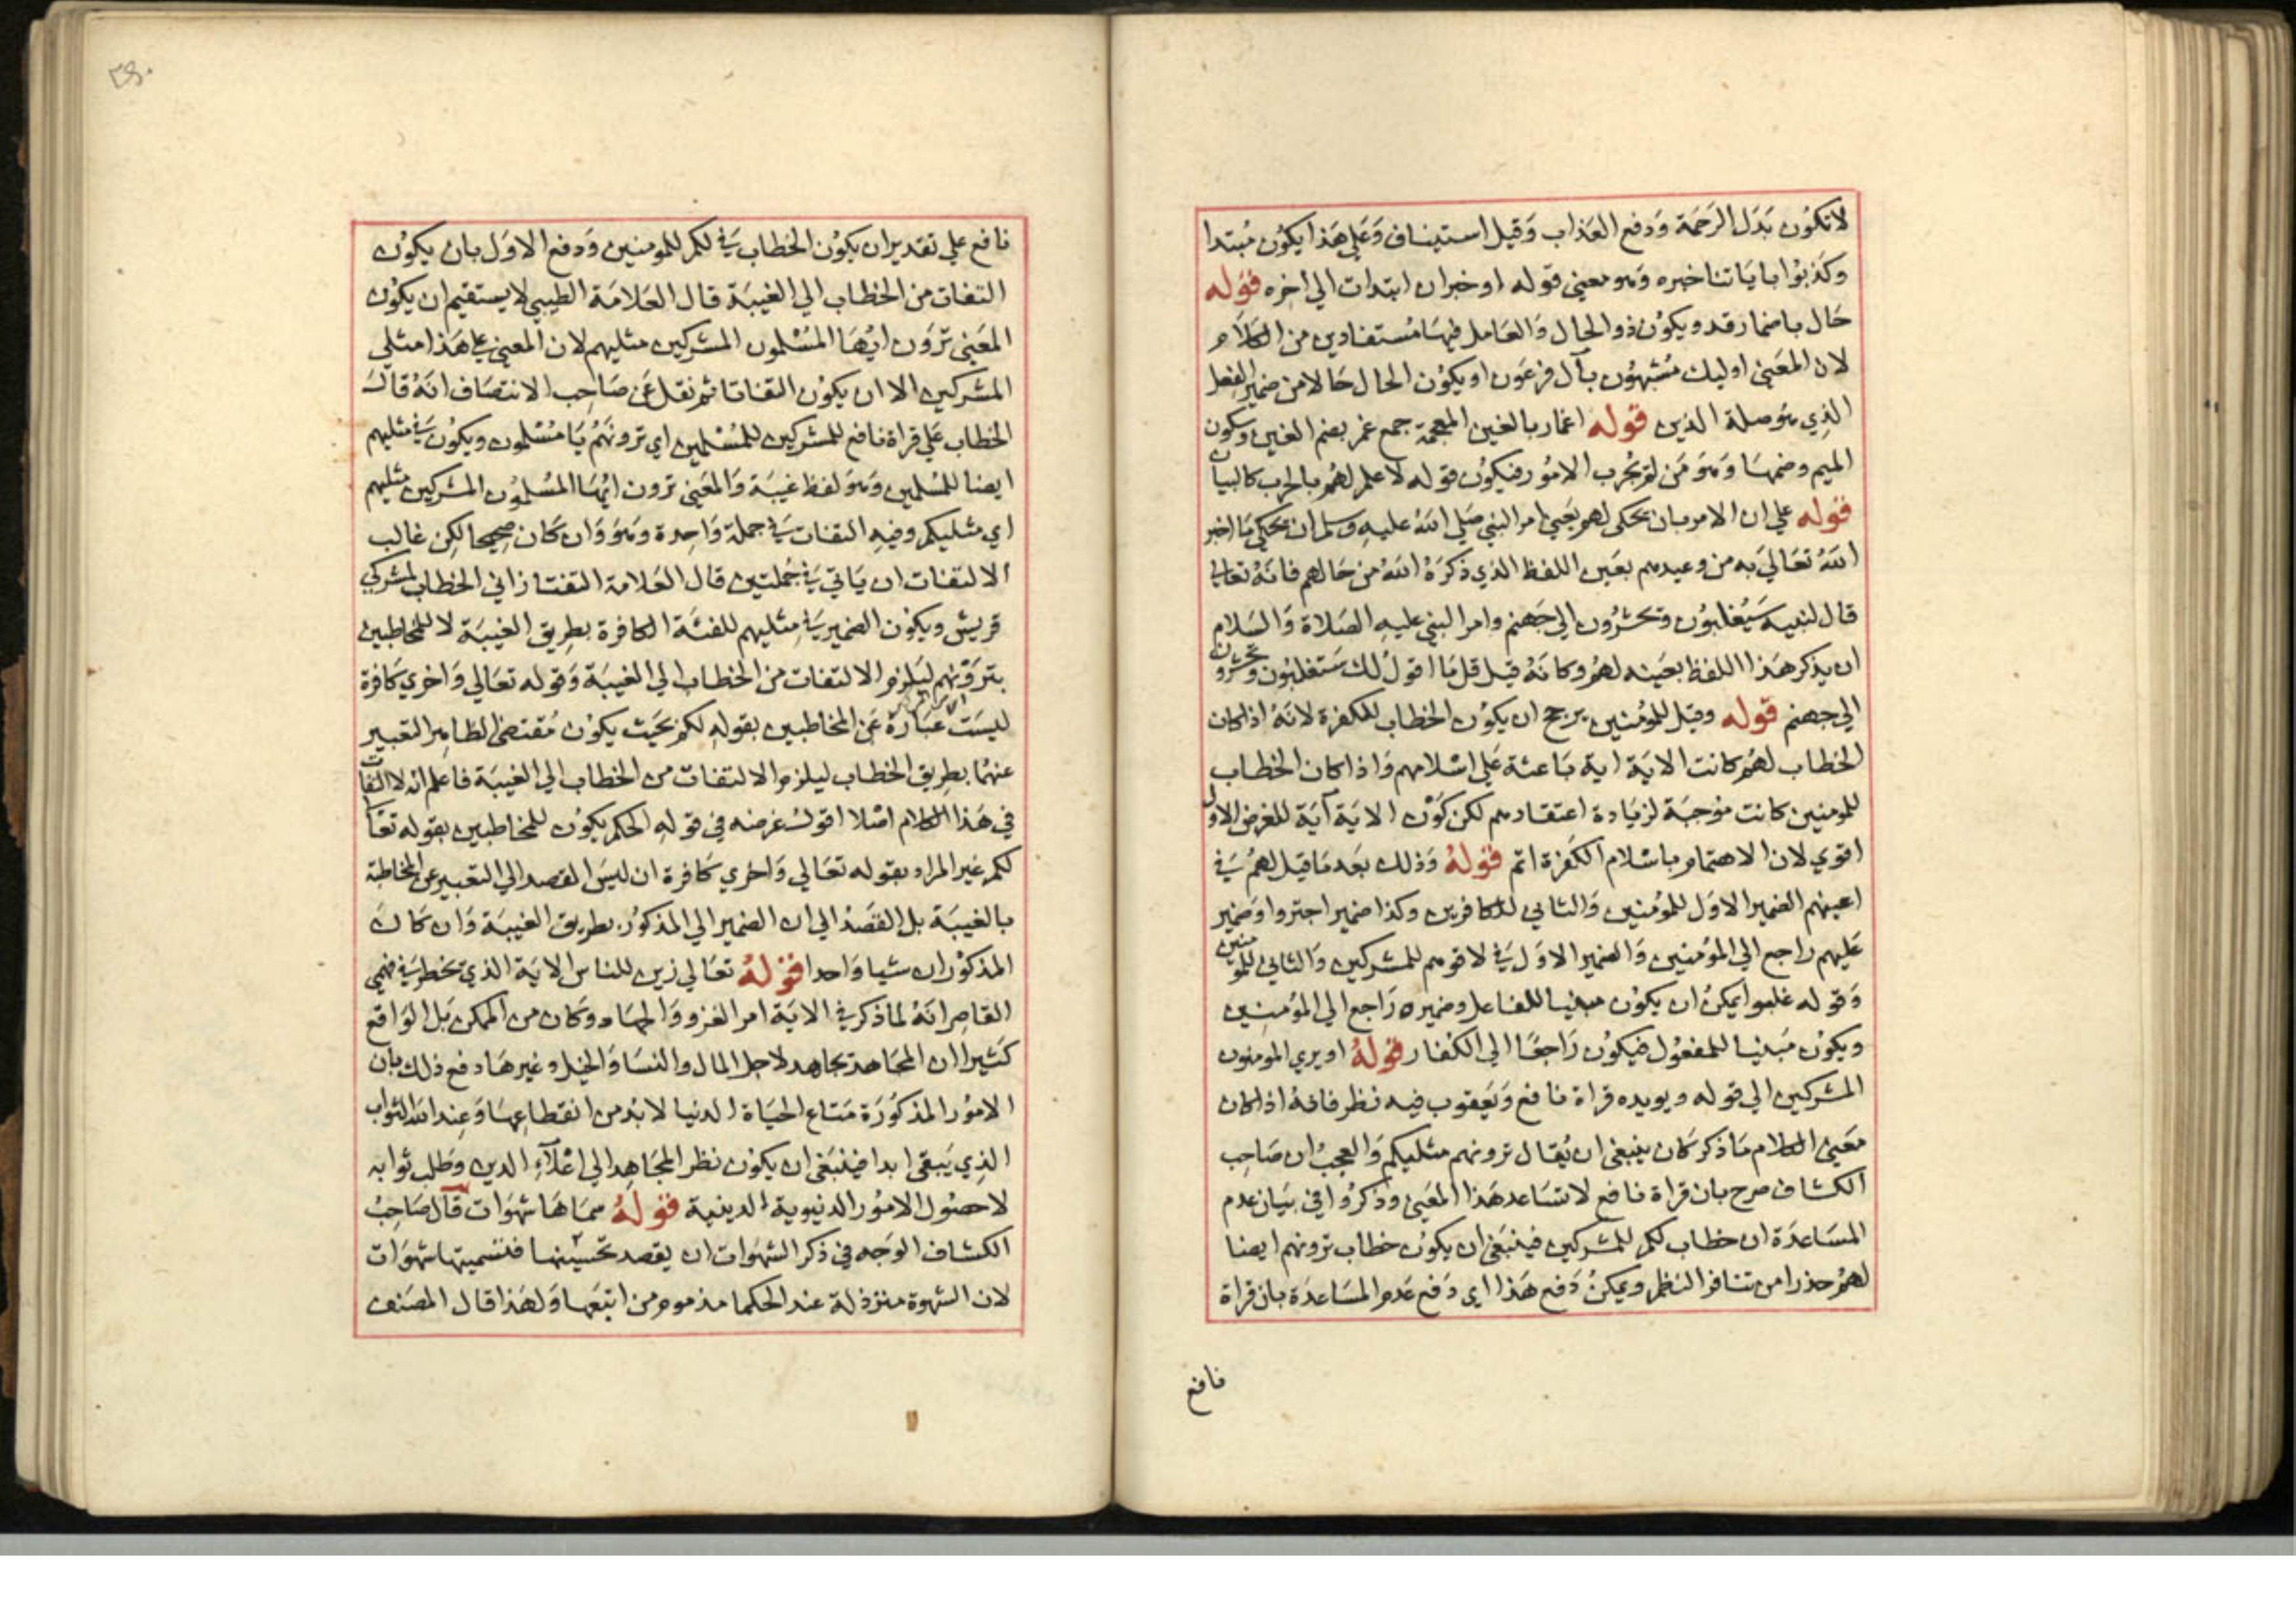 لا تكون بَدَل الرحمَة وَدفع العَذاب وَقيل استيناف وَعلي هَذا يكون مُبتدا
وكذبوا باياتنا خبره وَهو معني قوله او خبران ابتدات الي اخره قوله
حَال باضمار قد ويكون ذو الحال وَالعَامل فيهَا مُستفادين من الكلام
لان المعَني اوليك مُشبهُون بآل فرعَون او يكون الحال حَالا من ضمير الفعل
الذِي هوَ صلة الذين قوله اغمار بالغين المعجمة جمع غمر بضم الغين وسكون
الميم وضمهَا وَهوَ مَن لم يجُرب الامُور فيكون قوله لا علم لهُم بالحرب كالبيان
قوله علي ان الامر بان يحكي لهم يَعني امر النبي صَلي اللهُ عليه وسلم ان يحكي مَا اخبر
اللهُ تعَالي به من وعيدهم بعَين اللفظ الذي ذكرَهُ اللهُ من حَالهم فانهُ تعالي
قال لنبيه سَيُغلبُون وتحشرُون الي جَهنم وامر النبي عليه الصَلاة وَالسَلام
ان يذكر هَذا اللفظ بعَينه لهُم وكانهُ قيل قل مَا اقول لك سَتغلبُون وتحشرون
الي جهنم قوله وقيل للمؤمنين يرجح ان يكون الخطاب للكفرة لانهُ اذا كان
الخطاب لهُم كانت الايَة اية بَاعثة عَلي اسْلامهم وَاذا كان الخطاب
للمومنين كانت مُوجبَة لزيَادة اعتقادهم لكن كَوْن الايَة آيَة للغرض الاول
اقوي لان الاهتمام باسْلام الكَفرة اتم قولهُ وَذلك بَعد مَا قيل لهمُ في
اعينهم الضمير الاوَل للمؤمنين وَالثاني للكافرين وكذا ضمير اجتروا وَضمير
عَليهم راجع الي المؤمنين وَالضمير الاوَل في لاقوهم للمشركين وَالثاني للمومنين
وَقوله غلبوا يمكن ان يكون مبنيا للفاعل وضميره رَاجع الي المؤمنِين
ويكون مَبنيا للمفعُول فيكون رَاجعًا الي الكفار قولهُ او يري المومنون
المشركين الي قوله ويويده قراة نافع وَيَعقوب فيه نظر فانهُ اذا كان
معَني الكلام مَا ذكر كَان ينبغي ان يُقال ترونهم مثليكم وَالعجبُ ان صَاحِب
الكشاف صرح بان قراة نافع لا تسَاعد هَذا المعَني وذكرُوا في بيَان عدم
المسَاعدَة ان خطاب لكم للمشركين فينبَغي ان يكون خطاب ترونهم ايضا
لهُم حذرا من تنافر النظم ويمكنُ دَفع هَذا اي دَفع عَدم المسَاعدَة بان قراة
نافع
٣٨٠
نافع علي تقدير ان يكون الخطاب في لكم للمومنين وَدفع الاوَل بان يكون
التفات من الخطاب الي الغيبَة قال العَلامَة الطيبي لا يستقيم ان يكون
المعَني ترَون ايُّهَا المُسْلمون المشركين مثليهم لان المعني علي هَذا مثلي
المشركين الا ان يكون التفاتا ثم نقل عَن صَاحِب الانتصَاف انهُ قال
الخطاب عَلي قراة نافع للمشركين للمُسْلمين اي ترونهُم يَا مُسْلمون ويكون في مثليهم
ايضا للمُسْلمين وَهوَ لفظ غيبَة وَالمعَني ترون ايُّهَا المسُلمون المشركين مثليهم
اي مثليكم وفيه التفات في جملة وَاحِدة وَهوَ وَان كَان صَحيحا لكِن غالب
الالتفات ان يَاتي في جُملتين قال العَلامة التفتازاني الخطاب لمشركي
قريش ويكون الضمير في مِثليهم للفئة الكافرة بطِريق الغيبَة لا للمخاطبين
بترَوْنهم ليَلزم الالتفات من الخطاب الي الغيبَة وَقوله تعَالي وَاخري كَافرة
ليسَت عبَارة عَن المخاطبين بقوله لكم بحَيث يكون مُقتضى الظاهر التعبير
عنهُما بطريق الخطاب ليلزم الالتفات من الخطاب الي الغيبَة فاعلم انه لا التفات
في هَذا الكلام اصْلا اقول غرضه في قوله الحكم يكون للمخاطبين بقوله تعَا
لكم غير المراد بقوله تعَالي وَاخري كَافرة ان ليسَ القصد الي التعبير عن المخاطبة
بالغيبَة بل القصَد الي ان الضمير الي المذكوُر بطريق الغيبَة وَان كَان
المذكوران شيا وَاحدا قولهُ تعَالي زين للناس الايَة الذي يخطر في فهمي
القاصِر انهُ لما ذكر في الايَة امر الغزو وَالجهَاد وَكان من الممكن بَل الوَاقع
كثيرا ان المجَاهد يجاهد لاجل المال والنسَا وَالخيل وغيرهَا دفع ذلك بان
الامُور المذكوُرَة مَتاع الحيَاة الدنيا لا بدمن انقطاعِهَا وَعِند الله الثواب
الذِي يَبقى ابدا فينبَغي ان يكون نظر المجَاهِد الي اعْلآءِ الدين وَطلب ثوابه
لا حصُول الامُور الدنيوية الدينية قولهُ سمَاهَا شهَوات قال صَاحِبُ
الكشاف الوَجه في ذكر الشهَوات ان يقصد تخسيْنها فتسميتها شهوَات
لان الشهوة مستزذلة عند الحكما مذموم من اتبَعها وَلهَذا قال المصَنف